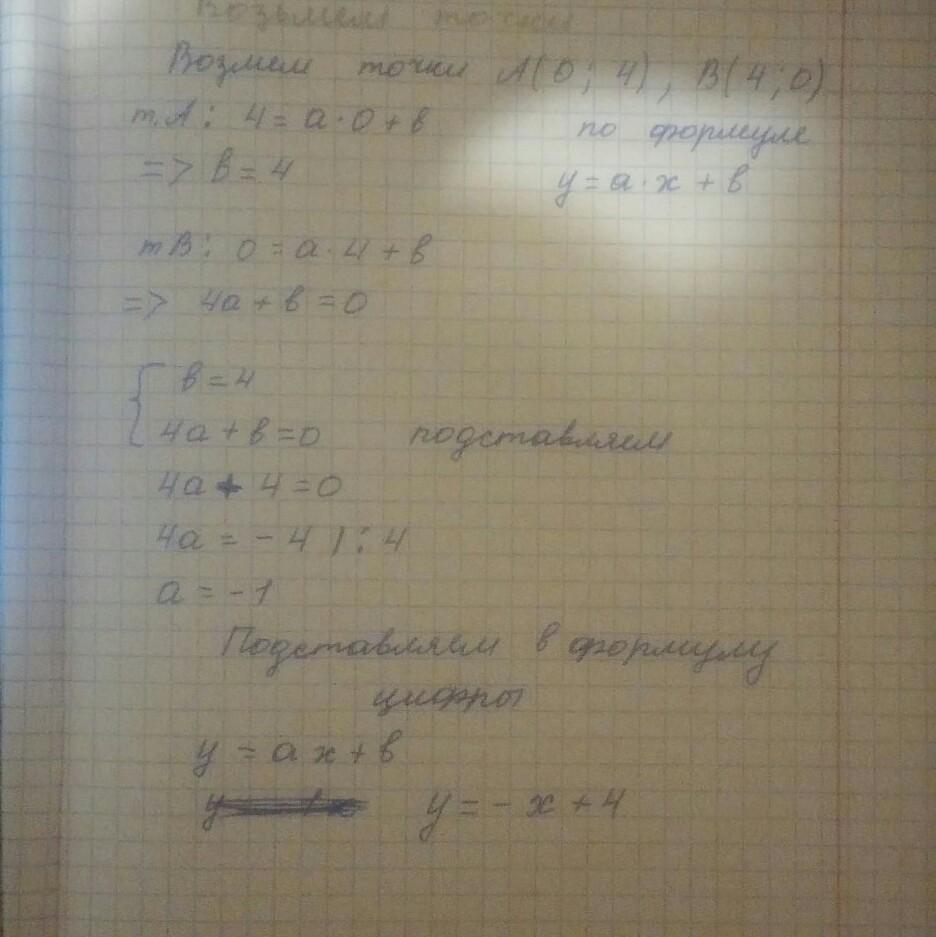 Возьмем точки
Возмем точки A(0; 4), B(4;0)
т.A: 4 = a·0 + в
по формуле
=> в = 4
y = a·x + в
тB: 0 = a·4 + в
=> 4a + в = 0
{ в = 4
4a + в = 0 подставляем
4a + 4 = 0
4a = - 4 | : 4
a = - 1
Подставляем в формулу
цифры
y = a x + в
y = - x + 4